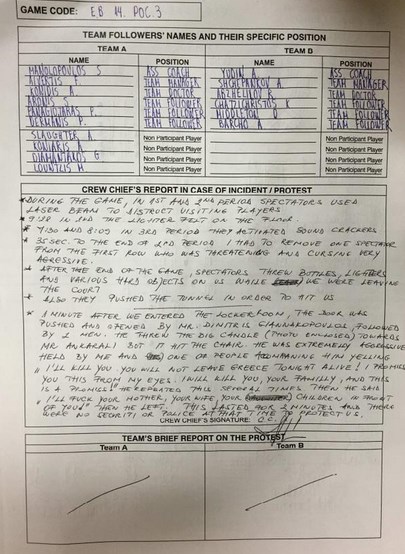 GAME CODE: EB 14. POC. 3
TEAM FOLLOWERS' NAMES AND THEIR SPECIFIC POSITION
TEAM A TEAM B
NAME POSITION NAME POSITION
MANOLOPOULOS S ASS COACH YUDIN A. ASS COACH
ALVERTIS F. TEAM MANAGER SHCHERBAKOV A. TEAM MANAGER
KONIDIS A. TEAM DOCTOR ABZHELILOV R TEAM DOCTOR
ARONIS S TEAM FOLLOWER CHATZICHRISTOS K TEAM FOLLOWER
PANAGIOTARAS P. TEAM FOLLOWER MIDDLETON D TEAM FOLLOWER
BERMANIS P. TEAM FOLLOWER BARCHO A. TEAM FOLLOWER
SLAUGHTER A Non Participant Player Non Participant Player
KONIARIS A Non Participant Player Non Participant Player
DIAMANTAKOS G Non Participant Player Non Participant Player
LOUNTZIS M Non Participant Player Non Participant Player
CREW CHIEF'S REPORT IN CASE OF INCIDENT / PROTEST
* DURING THE GAME, IN 1ST AND 2ND PERIOD SPECTATORS USED
LASER BEAM TO DISTRUCT VISITING PLAYERS
* 9:38 IN 3RD THE LIGHTER FELT ON THE FLOOR.
* 4:30 AND 8:03 IN 3RD PERIOD THEY ACTIVATED SOUND CRACKERS
* 35 SEC. TO THE END OF 2ND PERIOD I HAD TO REMOVE ONE SPECTATOR
FROM THE FIRST ROW WHO WAS THREATENING AND CURSING VERY
AGRESSIVE.
* AFTER THE END OF THE GAME, SPECTATORS THREW BOTTLES, LIGHTERS
AND VARIOUS HARD OBJECTS ON US WHILE WE WERE LEAVING
THE COURT
* ALSO THEY PUSHED THE TUNNEL IN ORDER TO HIT US
* 1 MINUTE AFTER WE ENTERED THE LOCKERROOM, THE DOOR WAS
PUSHED AND OPENED BY MR. DIMITRIS GIANNAKOPOULOS, FOLLOWED
BY 2 MEN. HE THREW THE BIG CANDLE (PHOTO ENCLOSED) TOWARDS
MR. ANKARALI BUT IT HIT THE CHAIR. HE WAS EXTREMELY AGGRESSIVE
HELD BY ME AND ONE OF PEOPLE ACOMPANING HIM YELLING
"I'LL KILL YOU, YOU WILL NOT LEAVE GREECE TONIGHT ALIVE! I PROMISE
YOU THIS FROM MY EYES. I WILL KILL YOU, YOUR FAMILY, AND THIS
IS A PROMISE!" HE REPEATED THIS SEVERAL TIMES. THEN HE SAID
"I'LL FUCK YOUR MOTHER, YOUR WIFE, YOUR CHILDREN IN FRONT
OF YOU!" THEN HE LEFT. THIS LASTED FOR 2 MINUTES AND THERE
WERE NO SECURITY OR POLICE AT THAT TIME TO PROTECT US.
CREW CHIEF'S SIGNATURE: C.C.
TEAM'S BRIEF REPORT ON THE PROTEST
Team A Team B